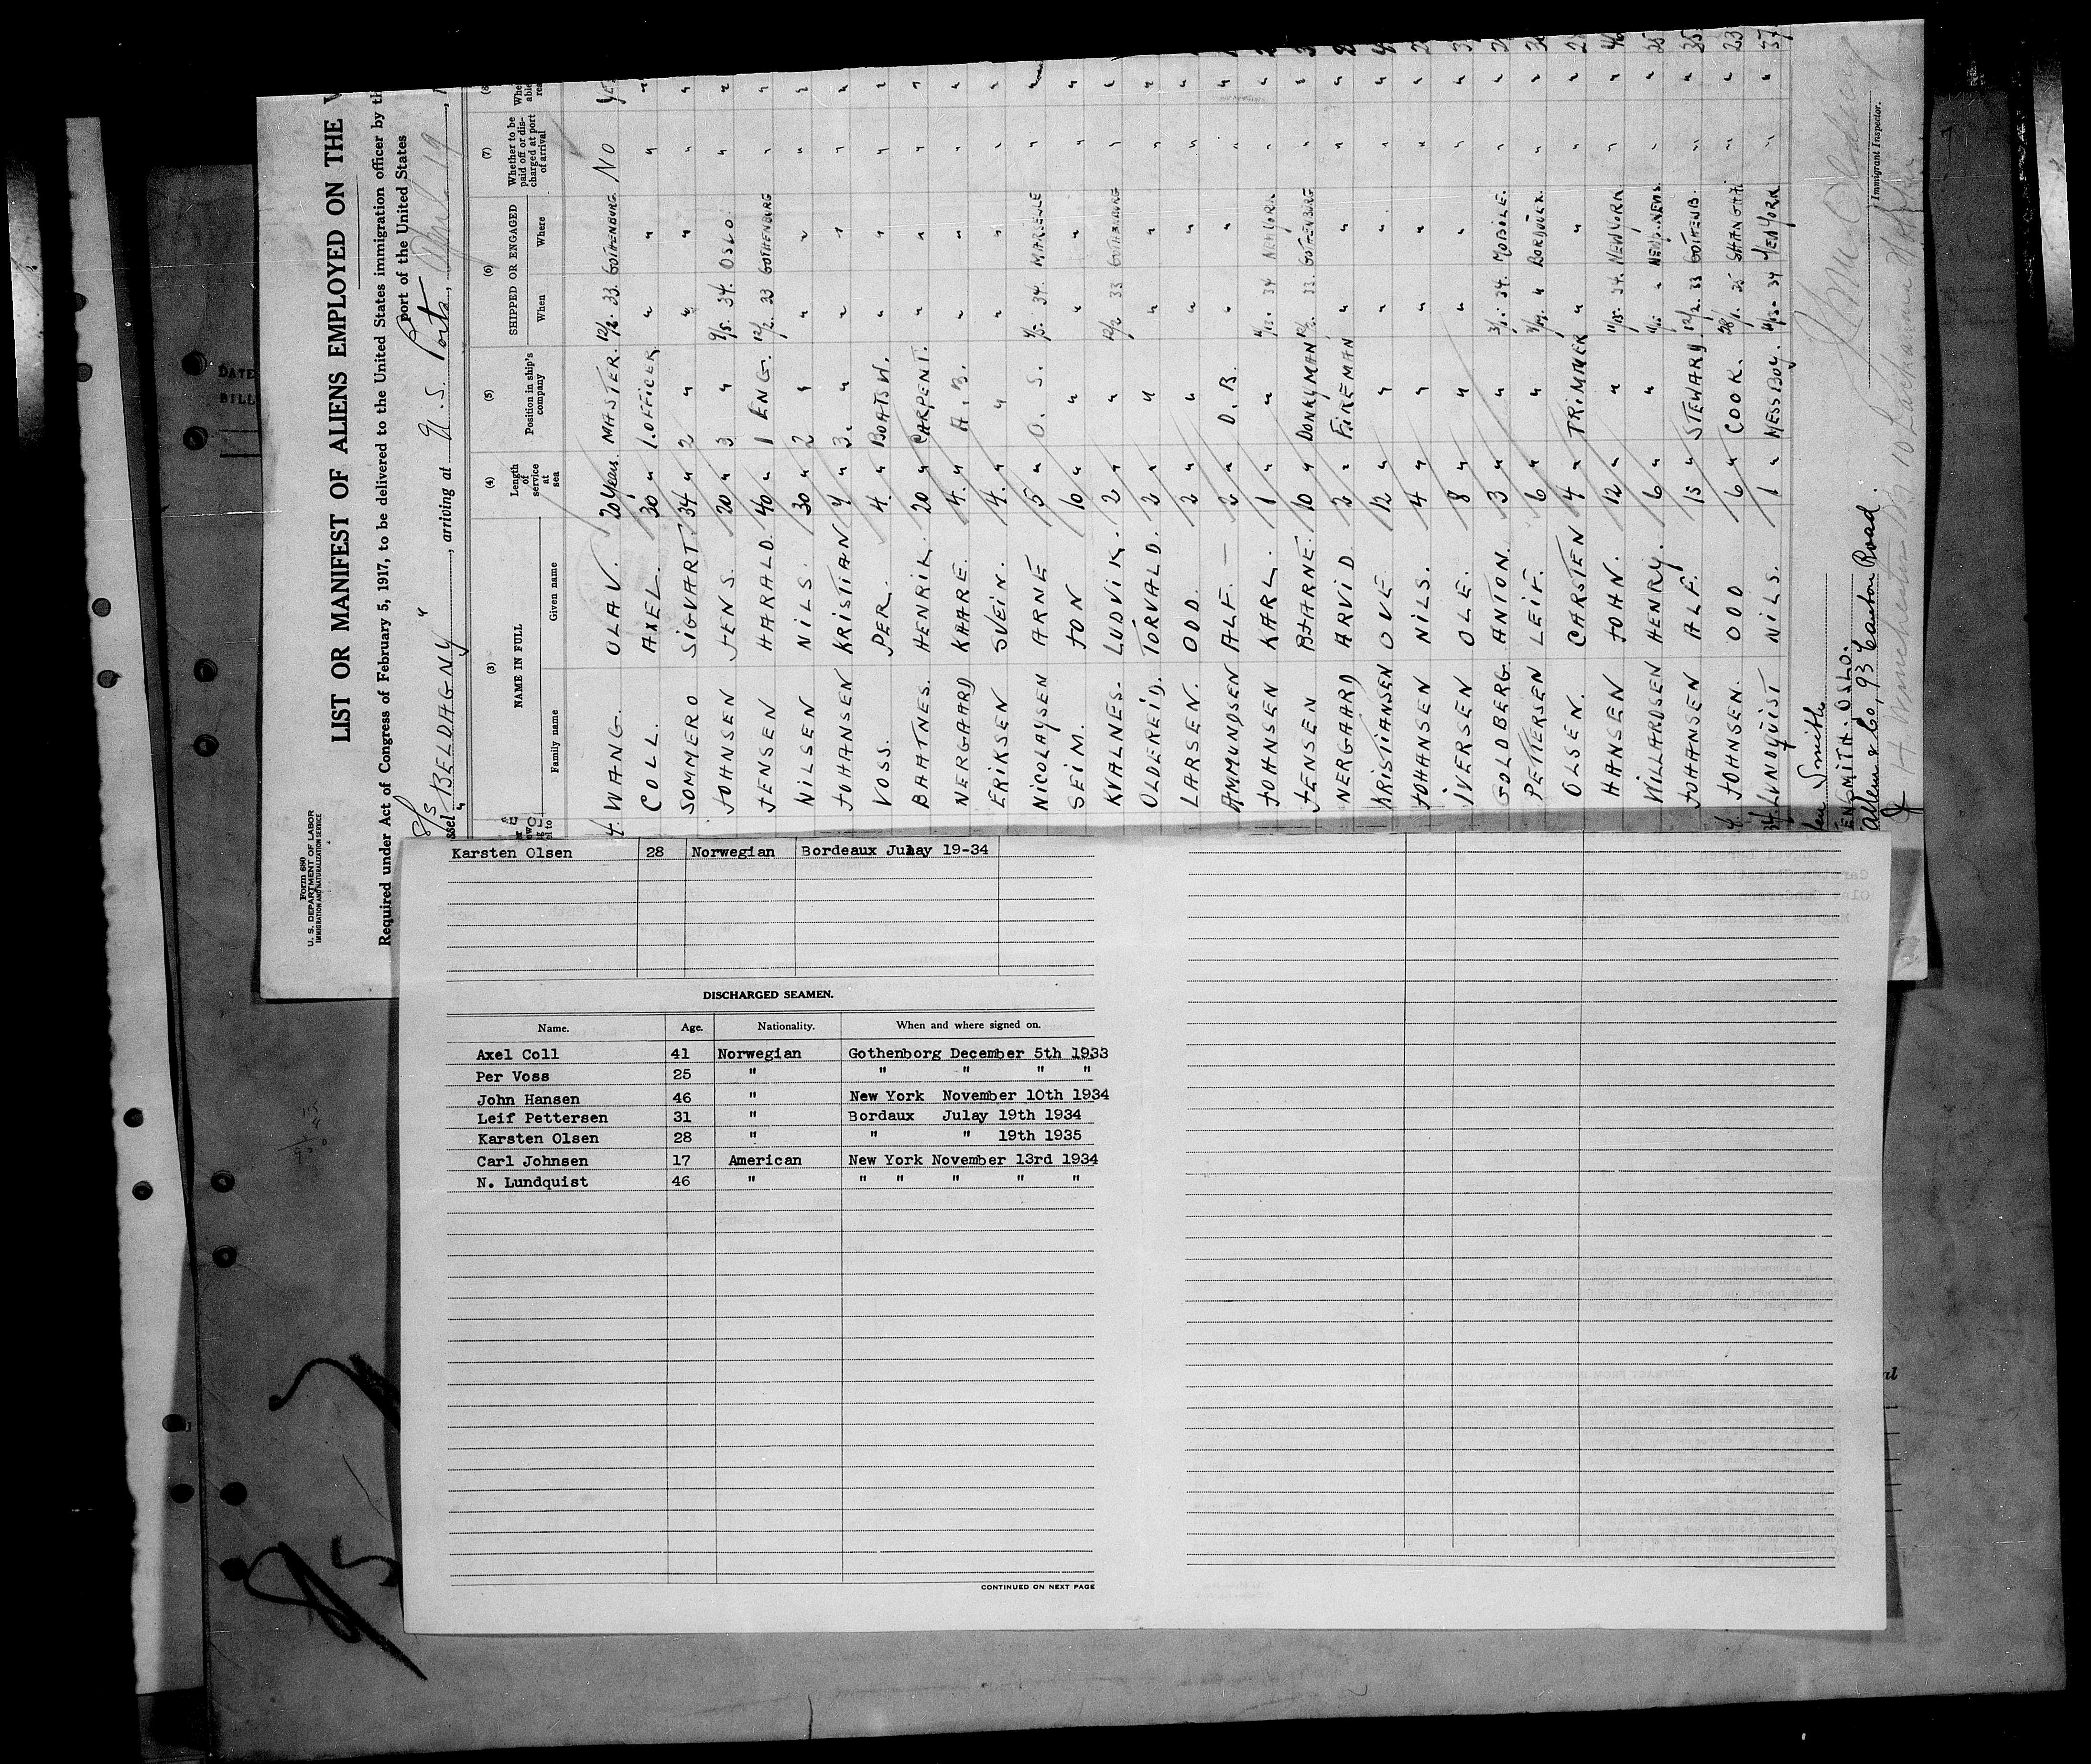 Form 680
U. S. DEPARTMENT OF LABOR
IMMIGRATION AND NATURALIZATION SERVICE
LIST OR MANIFEST OF ALIENS EMPLOYED ON THE
Required under Act of Congress of February 5, 1917, to be delivered to the United States immigration officer by th
port of the United States
S/S
ssel "BELDAGNY", arriving at U.S. Ports, April 19,
(3) (4) (5) (6) (7) (8
NAME IN FULL
Family name Given name
Length of service at sea
Position in ship's company
SHIPPED OR ENGAGED
When Where
Whether to be paid off or discharged at port of arrival
WANG. OLAV. 20 Years. MASTER. 12/2. 33. GOTHENBURG. NO YE
COLL. AXEL. 30 " 1. OFFICER. " " "
SOMMERO SIGVART. 34 " 2 " " " "
JOHNSEN JENS. 20 " 3 " 9/5. 34. OSLO "
JENSEN HARALD. 40 " 1 ENG. 12/2. 33 GOTHENBURG "
NILSEN NILS. 30 " 2 " " " "
JOHANSEN KRISTIAN 9 " 3. " " " "
VOSS. PER. 4. " BOATSW. " " "
BAATNES. HENRIK. 20 " CARPENT. " " "
NERGAARD KAARE. 4. " A.B. " " "
ERIKSEN SVEIN. 4. " " " " "
NICOLAYSEN ARNE 5 " O.S. 34. MARSEILLE "
SEIM. JON 10 " " " " "
KVALNES. LUDVIK. 2 " " 12/2 33 GOTHENBURG "
OLDEREID. TORVALD. 2 " " " " "
LARSEN. ODD. 2 " " " " "
AMMUNDSEN ALF. — 2 " D.B. " " "
JOHNSEN KARL. 1 " " 11/13. 34 NEWYORK "
JENSEN BJARNE. 10 " DONKYMAN 12/2. 33. GOTHENBORG "
NERGAARD ARVID 2 " FIREMAN " " "
KRISTIANSEN OVE 12 " " " " "
JOHANSEN NILS. 4 " " " " "
IVERSEN OLE. 8 " " " " "
GOLDBERG ANTON. 3 " " 3/1. 34. MOBILE. "
PETTERSEN LEIF. 6 " " 7/19. " BORDOUEX. "
OLSEN. CARSTEN 4 " TRIMMER " " "
HANSEN JOHN. 12 " " 11/13. 34. NEWYORK "
WILLARDSEN HENRY. 6 " " " NEWP. NEWS. "
JOHANSEN ALF. 15 " STEWARD 12/2. 33 GOTHENB. "
JOHNSEN. ODD 6 " COOK. 28/1. 35 SHANGHAI "
LUNDQUIST NILS. 1 " MESSBOY. 11/13. 34 NEW YORK "
Smith
ENSMITH. OSLO.
Allen & Co, 93 Canton Road.
Immigrant Inspector.
DATE
BILL
Karsten Olsen 28 Norwegian Bordeaux Julay 19-34
DISCHARGED SEAMEN.
Name. Age. Nationality. When and where signed on.
Axel Coll 41 Norwegian Gothenborg December 5th 1933
Per Voss 25 " " " " "
John Hansen 46 " New York November 10th 1934
Leif Pettersen 31 " Bordaux Julay 19th 1934
Karsten Olsen 28 " " " 19th 1935
Carl Johnsen 17 American New York November 13rd 1934
N. Lundquist 46 " " " " " "
CONTINUED ON NEXT PAGE